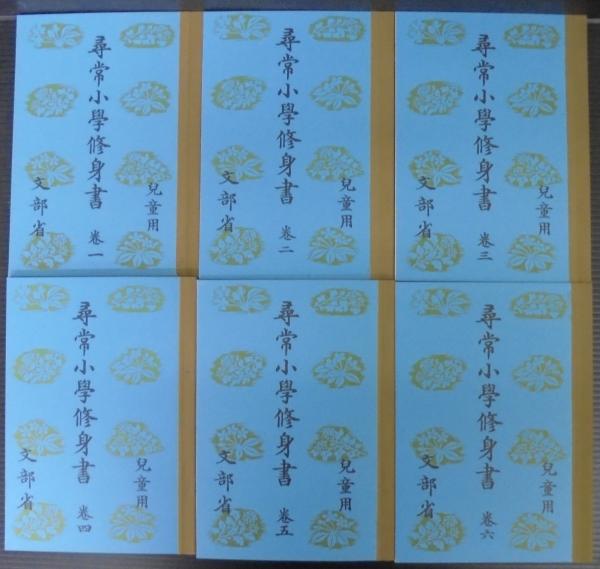 尋常小學修身書 卷一
兒童用
文部省
尋常小學修身書 卷二
兒童用
文部省
尋常小學修身書 卷三
兒童用
文部省
尋常小學修身書 卷四
兒童用
文部省
尋常小學修身書 卷五
兒童用
文部省
尋常小學修身書 卷六
兒童用
文部省